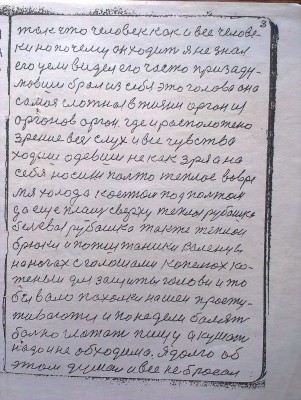 3
так ето человек как и все челове-
ки но почему он ходит я не знал
его цели видел его часто призаду-
мовши брал из себя это голова она
самая глотная в жизни орган из
органов орган. где и расположено
зрение весь слух и все чувства
ходил одевши не как зря а на
себя носил палто теплое во вре
мя холода костюм под палтом
да еще плащ сверху теплоя рубашка
белевая рубашка также теплои
брюки и потштаники валенцы
на ногах с голошами капелюх ко-
женый для защиты головы и то
бывало пахолки нашеи просту-
живаются и по неделе болят
болно глотат пищу а кушат
надо и не обходимо. я долго об
этом думал и все не бросал